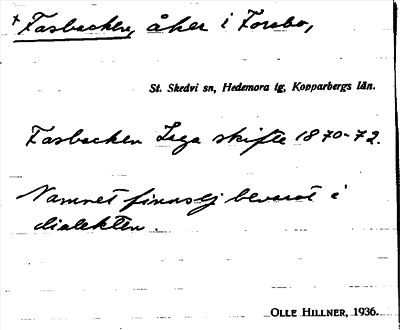 + Fasbacken, åker i Forsbo,
St. Skedvi sn, Hedemora tg, Kopparbergs län.
Fasbacken Laga skifte 1870-72.
Namnet finns ej bevarat i
dialekten.
OLLE HILLNER, 1936.